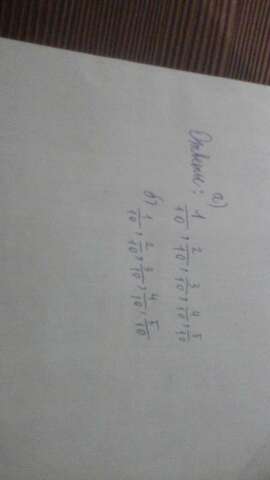 а)
Ответы: 1/10, 2/10, 3/10, 4/10, 5/10
б) 1/10, 2/10, 3/10, 4/10, 5/10